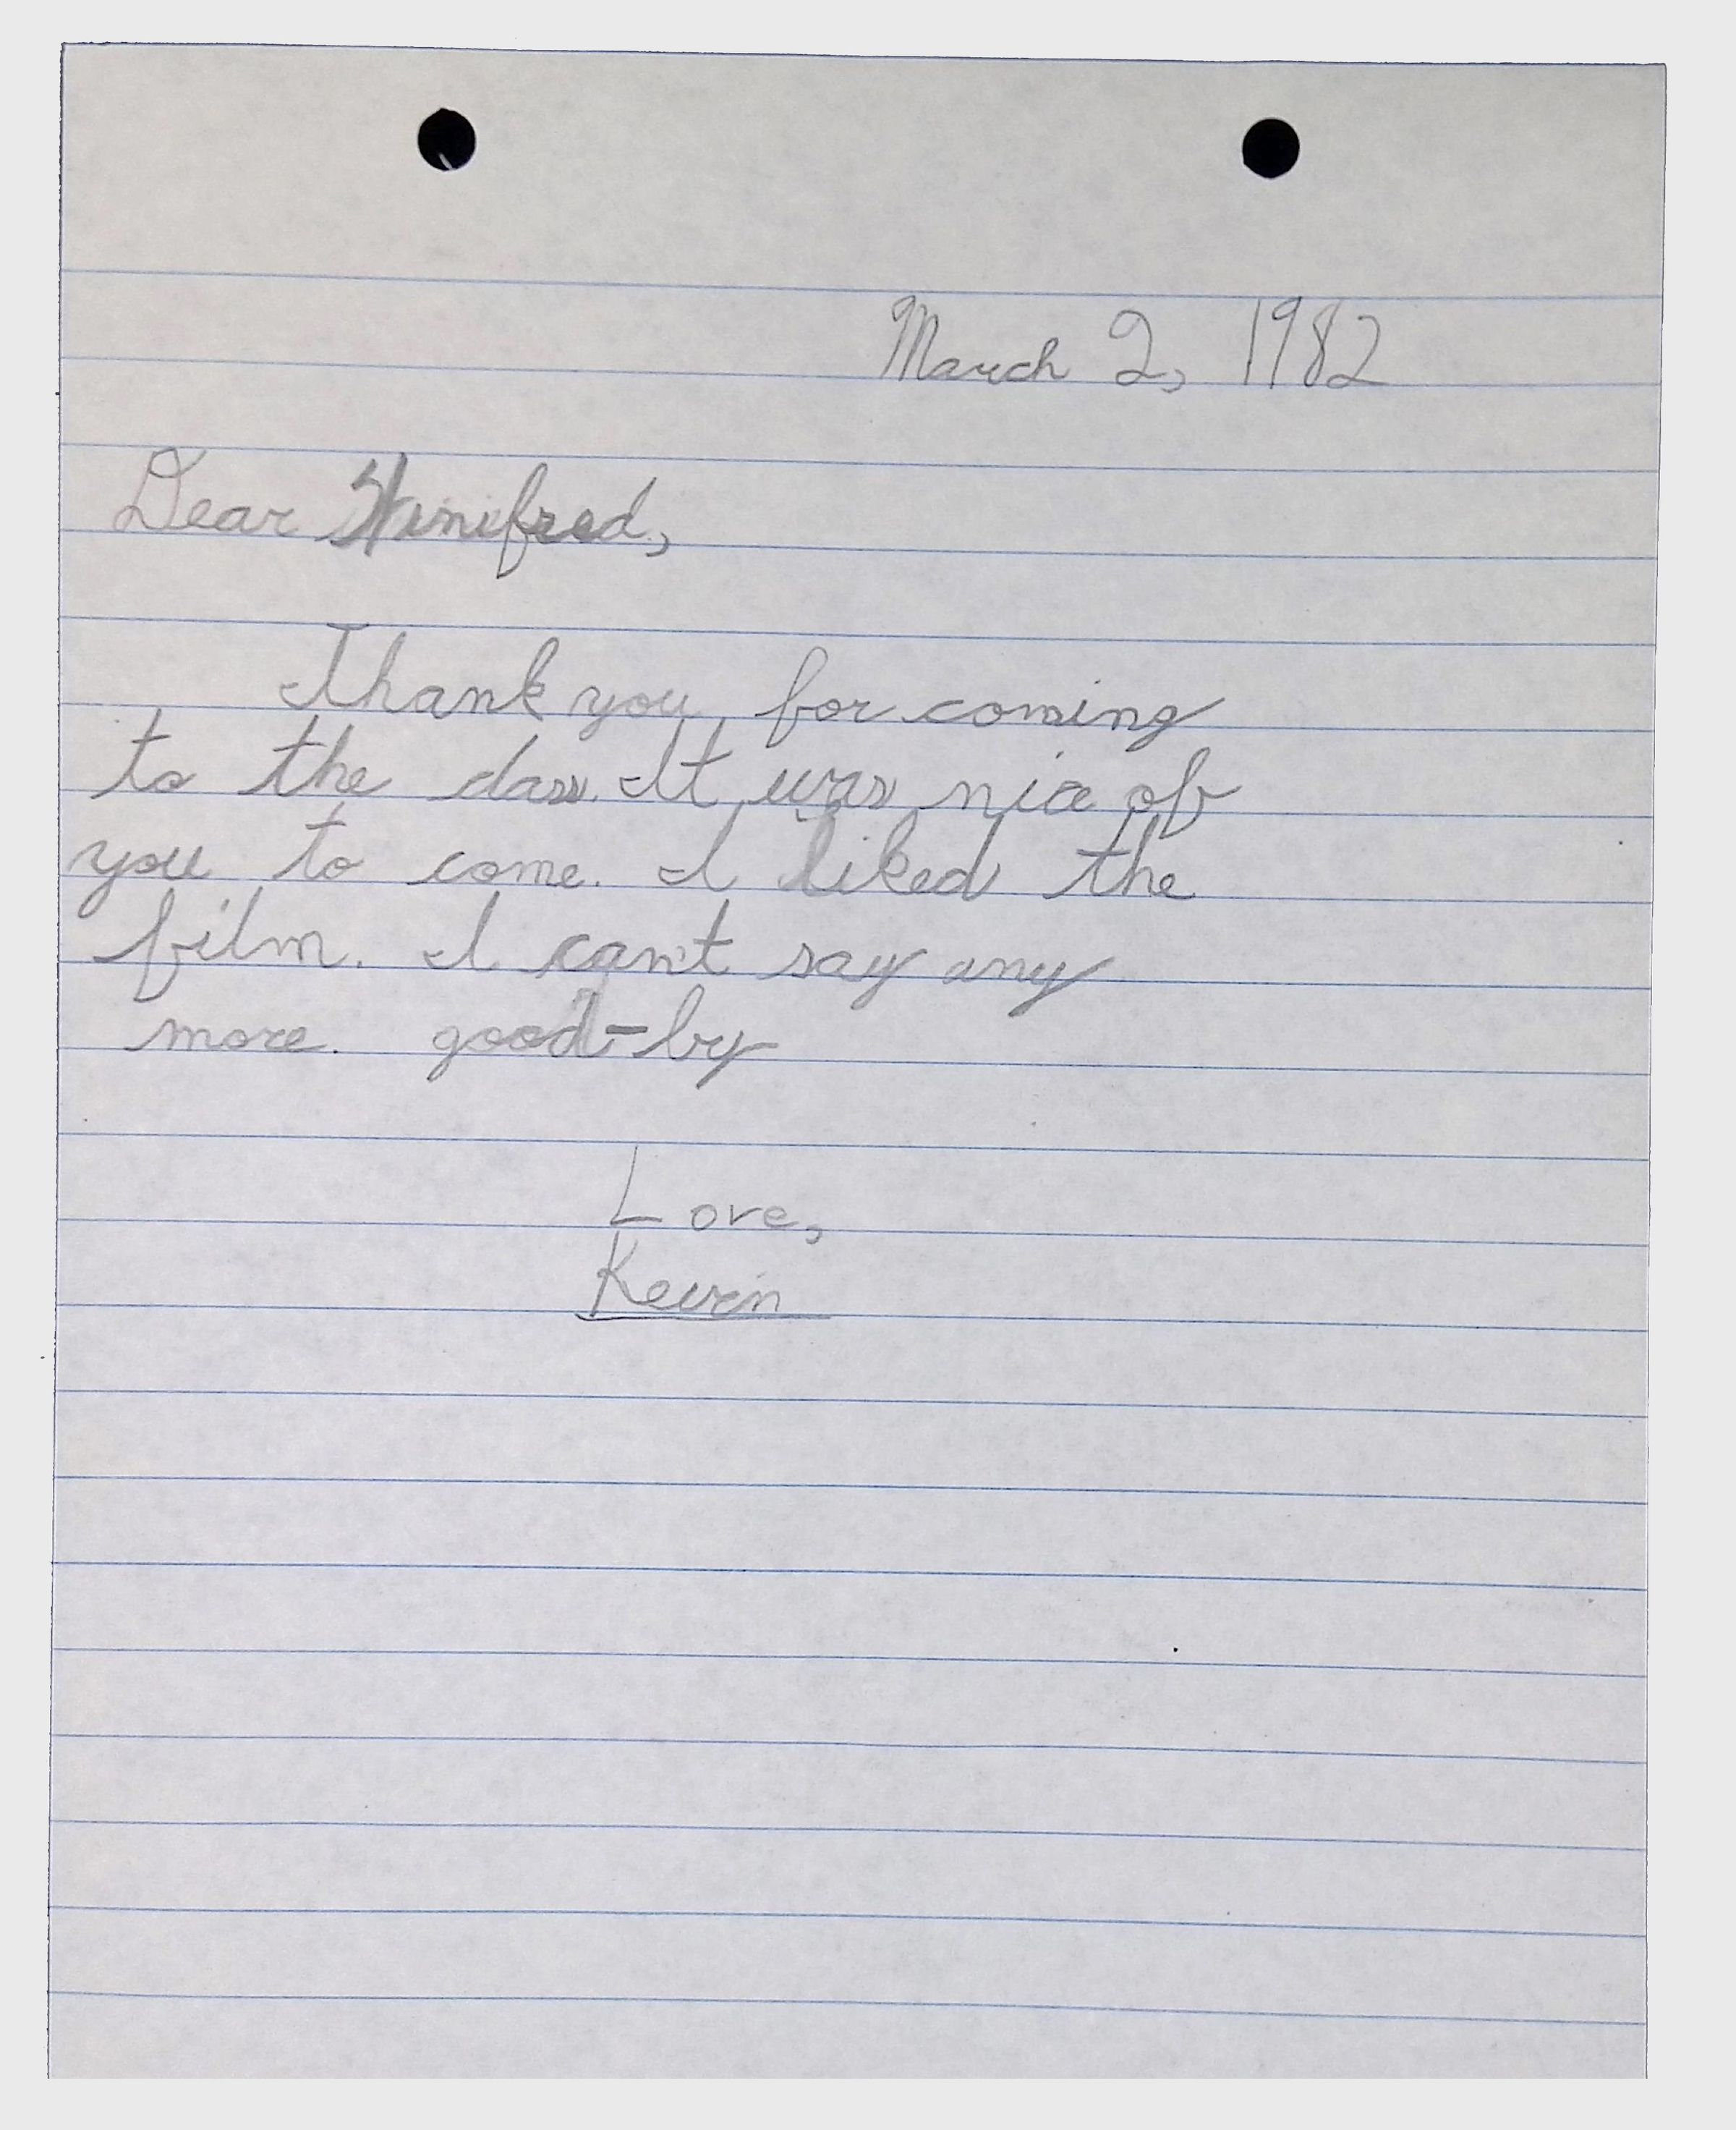 March 2, 1982
Dear Winifred,
Thank you for coming
to the class. It was nice of
you to come. I liked the
film. I can't say any
more. good-by
Love,
Kevin